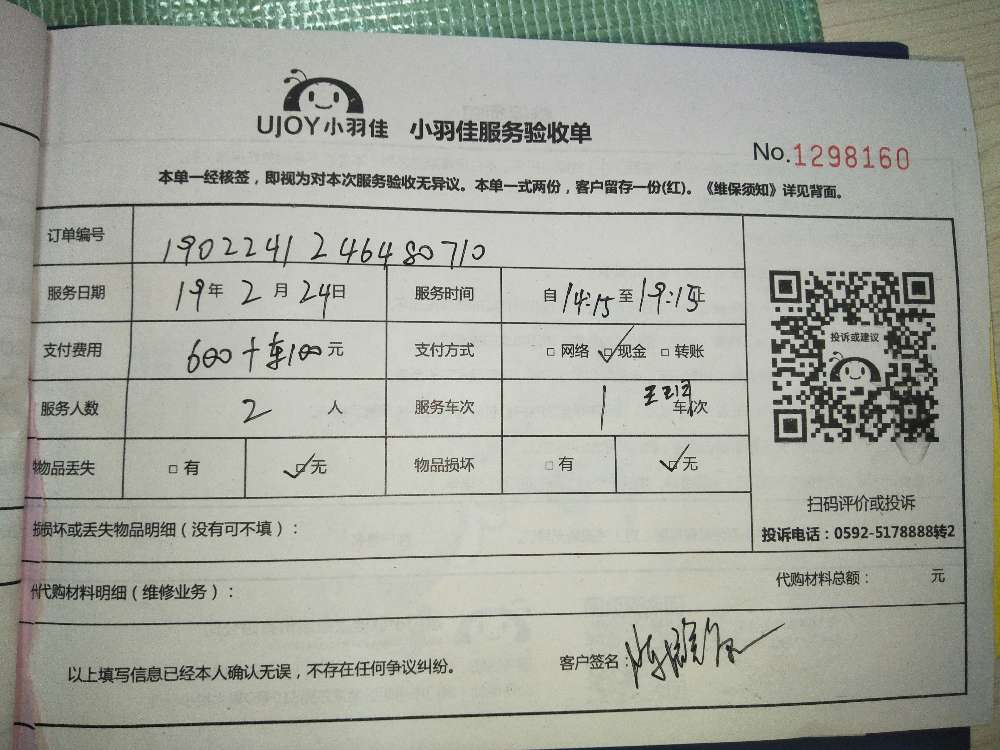 UJOY小羽佳 小羽佳服务验收单
No.1298160
本单一经核签，即视为对本次服务验收无异议。本单一式两份，客户留存一份(红)。《维保须知》详见背面。
订单编号 190224124648071​0
服务日期 19年2月24日 服务时间 自14:15至19:15止
支付费用 600+车100元 支付方式 □网络 ☑现金 □转账
投诉或建议
服务人数 2人 服务车次 1 车次
物品丢失 □有 ☑无 物品损坏 □有 ☑无
扫码评价或投诉
损坏或丢失物品明细（没有可不填）：
投诉电话：0592-5178888转2
代购材料明细（维修业务）： 代购材料总额： 元
以上填写信息已经本人确认无误，不存在任何争议纠纷。 客户签名：